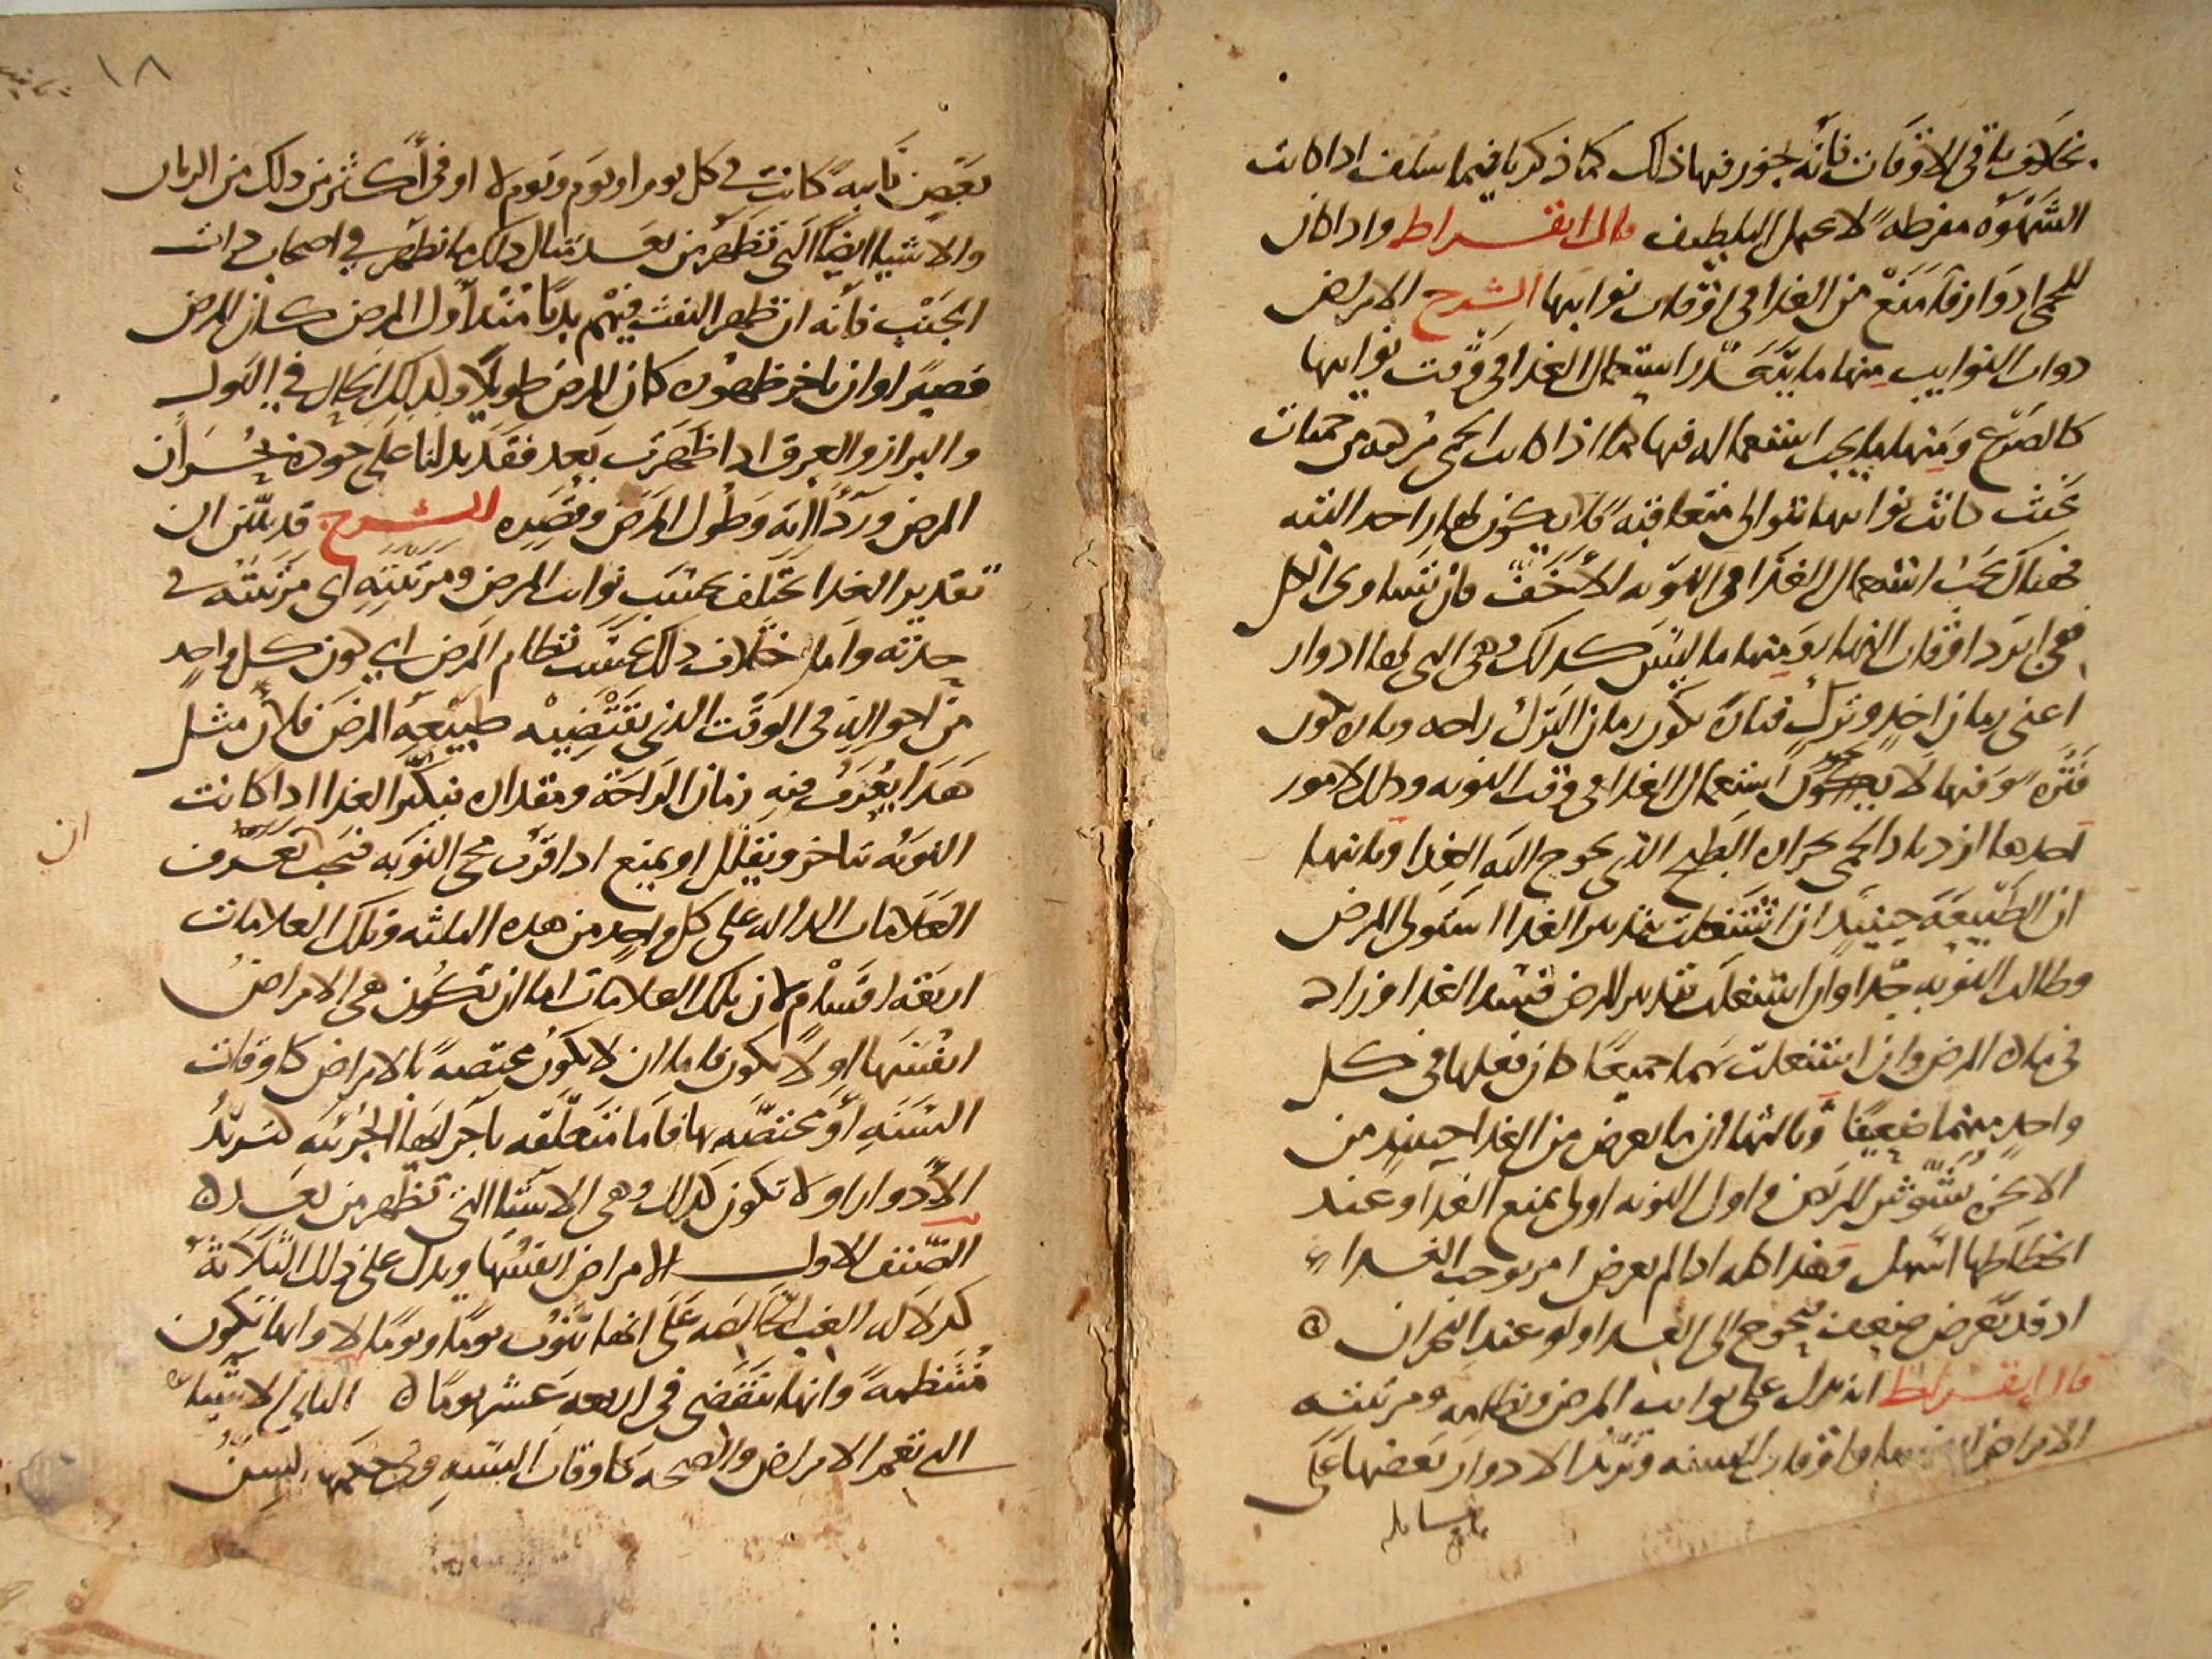 بخلاف باقى الاوقات فانه يجوز فيها ذلك كما ذكرنا فيما سلف اذا كانت
الشهوة مفرطة لا تحمل التلطيف قال ابقراط واذا كان
للحمى ادوار فامنع من الغذا فى اوقات نوايبها الشرح الامراض
ذوات النوايب منها ما يتعذر استعمال الغذا فى وقت نوايبها
كالصرع ومنها ما يجب استعماله فيها كما اذا كانت الحمى مركبة من حميات
بحيث كانت نوايبها تتوالى متعاقبة فلا يكون لها راحة البتة
فهناك يجب استعمال الغذا فى النوبة الاخف فان تساوى الكل
ففى ابرد اوقات النهار ومنها ما ليس كذلك وهى التى لها ادوار
اعنى زمان اخذ وترك فتارة يكون زمان الترك راحة وتارة يكون
فترة وفيها لا يجوز استعمال الغذا فى وقت النوبة وذلك لامور
احدها ازدياد الحمى بحرارة الطبخ الذى يحوج اليه الغذا وثانيها
ان الطبيعة حينيذ ان اشتغلت بتدبير الغذا استولى المرض
وطالت النوبة جدا وان اشتغلت بتدبير المرض فسد الغذا وزاد
فى مادة المرض وان اشتغلت بهما جميعا كان فعلها فى كل
واحد منهما ضعيفا وثالثها ان ما يعرض من الغذا حينيذ من
الابخرة يشوش المريض وفى اول النوبة اولى بمنع الغذا وعند
انحطاطها اسهل وهذا كله اذا لم يعرض امر يوجب الغذاء
اذ قد يعرض ضعف يحوج الى الغذا ولو عند البحران
قال ابقراط انه يدل على نوايب المرض ونظامه ومرتبته
الامراض انفسها واوقات السنة وتزيد الادوار بعضها على
بعض نايبة كانت فى كل يوم او يوم ويوم لا او فى اكثر من ذلك من الزمان
والاشيا ايضا التى تظهر من بعد مثال ذلك ما يظهر فى اصحاب ذات
الجنب فانه ان ظهر النفث فيهم بديا منذ اول المرض كان المرض
قصيرا وان تاخر ظهوره كان المرض طويلا وكذلك الحال فى البول
والبراز والعرق اذا ظهرت بعد فقد يدلنا على جودة بحران
المرض ورداءته وطول المرض وقصره الشرح قد بين ان
تقدير الغذا يختلف بحسب نوايب المرض ومرتبته اى مرتبته فى
حدته واما اختلاف ذلك بحسب نظام المرض اى كون كل واحد
من احواله فى الوقت الذى يقتضيه طبيعة المرض فلان مثل
هذا يعرف فيه زمان الراحة ومقداره فيكثر الغذا اذا كانت
النوبة تتاخر ويقلل او يمنع اذا قرب مجى النوبة فيجب تعرف
ان
العلامات الدالة على كل واحد من هذه الثلثة وتلك العلامات
اربعة اقسام لان تلك العلامات اما ان تكون هى الامراض
انفسها او لا تكون فاما ان لا تكون مختصة بالامراض كاوقات
السنة او مختصة بها فاما متعلقة باجزايها الجزئية كتزيد
الادوار او لا تكون كذلك وهى الاشيا التى تظهر من بعد
الصنف الاول الامراض انفسها ويدل على ذلك الثلاثة
كدلالة الغب الخالصة على انها تنوب يوما ويوما لا وانها تكون
منتظمة وانها تنقضى فى اربعة عشر يوما الثانى الاشيا
التى تعم الامراض والصحة كاوقات السنة